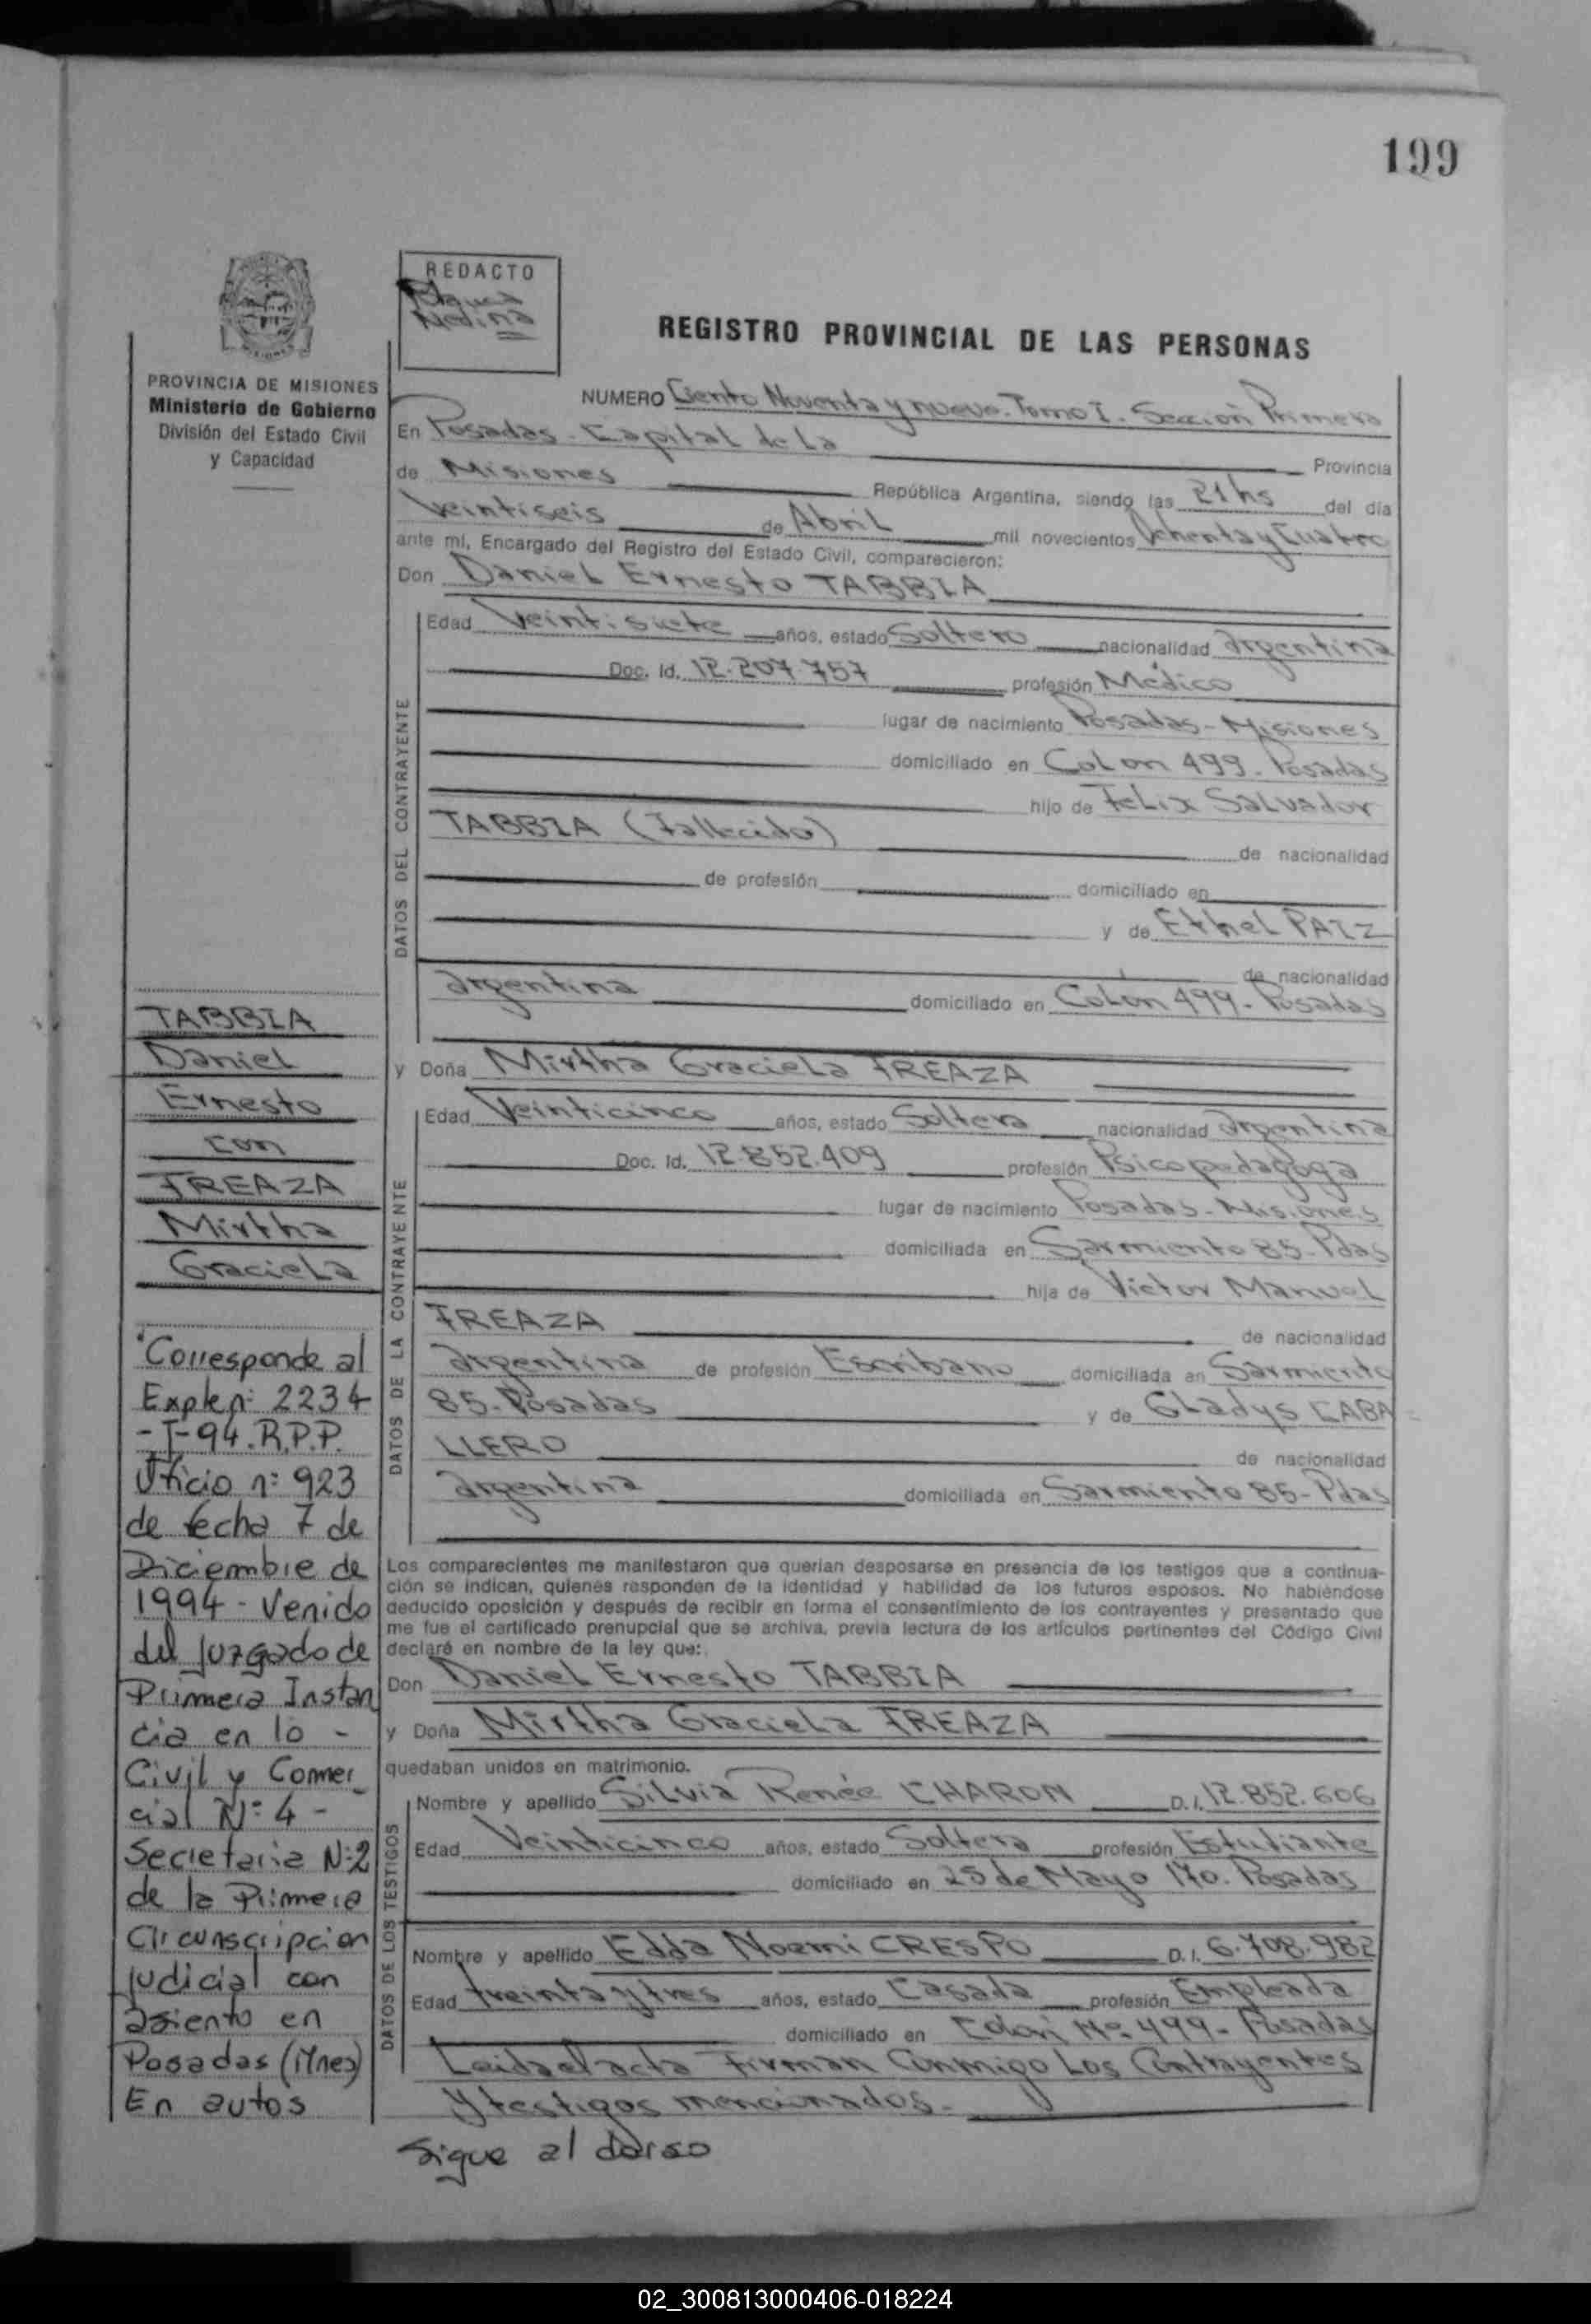 199
REDACTO
Medina
REGISTRO PROVINCIAL DE LAS PERSONAS
PROVINCIA DE MISIONES
Ministerio de Gobierno
División del Estado Civil
y Capacidad
NUMERO Ciento Noventa y nueve. Tomo I. Sección Primera
En Posadas. Capital de La Provincia
de Misiones República Argentina, siendo las 21 hs del día
Veintiseis de Abril mil novecientos Ochenta y Cuatro
ante mí, Encargado del Registro del Estado Civil, comparecieron:
Don Daniel Ernesto TABBIA
DATOS DEL CONTRAYENTE
Edad Veintisiete años, estado Soltero nacionalidad argentina
Doc. Id. 12.207.757 profesión Médico
lugar de nacimiento Posadas - Misiones
domiciliado en Colon 499. Posadas
hijo de Felix Salvador
TABBIA (Fallecido) de nacionalidad
de profesión domiciliado en
y de Ethel PAIZ
de nacionalidad
argentina domiciliado en Colon 499 - Posadas
y Doña Mirtha Graciela FREAZA
DATOS DE LA CONTRAYENTE
Edad Veinticinco años, estado Soltera nacionalidad argentina
Doc. Id. 12.852.409 profesión Psicopedagoga
lugar de nacimiento Posadas - Misiones
domiciliada en Sarmiento 85 - Pdas
hija de Victor Manuel
FREAZA de nacionalidad
argentina de profesión Escribano domiciliada en Sarmiento
85 - Posadas y de Gladys CABA
LLERO de nacionalidad
argentina domiciliada en Sarmiento 85 - Pdas
Los comparecientes me manifestaron que querían desposarse en presencia de los testigos que a continua-
ción se indican, quienes responden de la identidad y habilidad de los futuros esposos. No habiéndose
deducido oposición y después de recibir en forma el consentimiento de los contrayentes y presentado que
me fue el certificado prenupcial que se archiva, previa lectura de los artículos pertinentes del Código Civil
declaré en nombre de la ley que:
Don Daniel Ernesto TABBIA
y Doña Mirtha Graciela FREAZA
quedaban unidos en matrimonio.
DATOS DE LOS TESTIGOS
Nombre y apellido Silvia Renée CHARON D.I. 12.852.606
Edad Veinticinco años, estado Soltera profesión Estudiante
domiciliado en 25 de Mayo 170. Posadas
Nombre y apellido Edda Noemi CRESPO D.I. 6.708.982
Edad treinta y tres años, estado Casada profesión Empleada
domiciliado en Colon Nº 499 - Posadas
Leida el acta Firman Conmigo Los Contrayentes
y testigos mencionados.-
Sigue al dorso
TABBIA
Daniel
Ernesto
con
FREAZA
Mirtha
Graciela
"Corresponde al
Expte nº 2234
-T-94. R.P.P.
Oficio nº 923
de fecha 7 de
Diciembre de
1994 - Venido
del Juzgado de
Primera Instan
cia en lo -
Civil y Comer_
cial Nº 4 -
Secretaria Nº2
de la Primera
Circunscripcion
judicial con
asiento en
Posadas (Mnes)
En autos
02_300813000406-018224